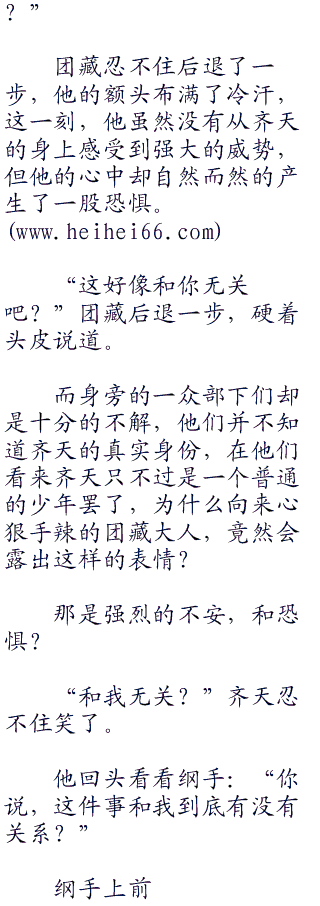 ？”
团藏忍不住后退了一
步，他的额头布满了冷汗，
这一刻，他虽然没有从齐天
的身上感受到强大的威势，
但他的心中却自然而然的产
生了一股恐惧。
(www.heihei66.com)
“这好像和你无关
吧？”团藏后退一步，硬着
头皮说道。
而身旁的一众部下们却
是十分的不解，他们并不知
道齐天的真实身份，在他们
看来齐天只不过是一个普通
的少年罢了，为什么向来心
狠手辣的团藏大人，竟然会
露出这样的表情？
那是强烈的不安，和恐
惧？
“和我无关？”齐天忍
不住笑了。
他回头看看纲手：“你
说，这件事和我到底有没有
关系？”
纲手上前